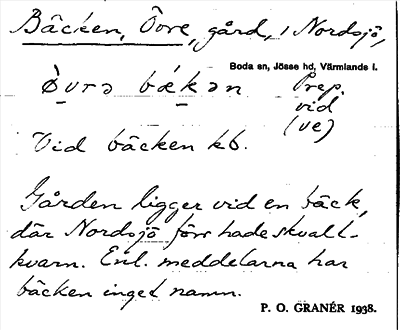 Bäcken, Övre, gård, i Nordsjö,
Boda sn, Jösse hd, Värmlands l.
ö̀vrə bǽkən Prep.
vid
(ve)
Vid bäcken kb.
Gården ligger vid en bäck,
där Nordsjö förr hade skvalt-
kvarn. Enl. meddelarna har
bäcken inget namn.
P. O. GRANÉR 1938.